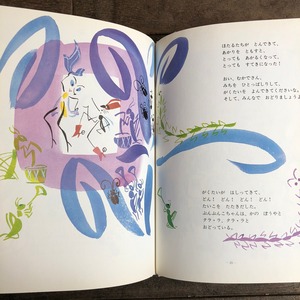 ほたるたちが　とんできて、
あかりを　ともすと、
とっても　あかるくなって、
とっても　すてきになった！
おい、むかでさん、
みちを　ひとっぱしりして、
がくたいを　よんできてくださいな。
そして、みんなで　おどりましょうよ。
がくたいが　はしってきて、
どん！　どん！　どん！　どん！
たいこを　たたきだした。
ぶんぶんこちゃんは、かの　ぼうやと
タラ・ラ、タラ・ラと
おどっている。